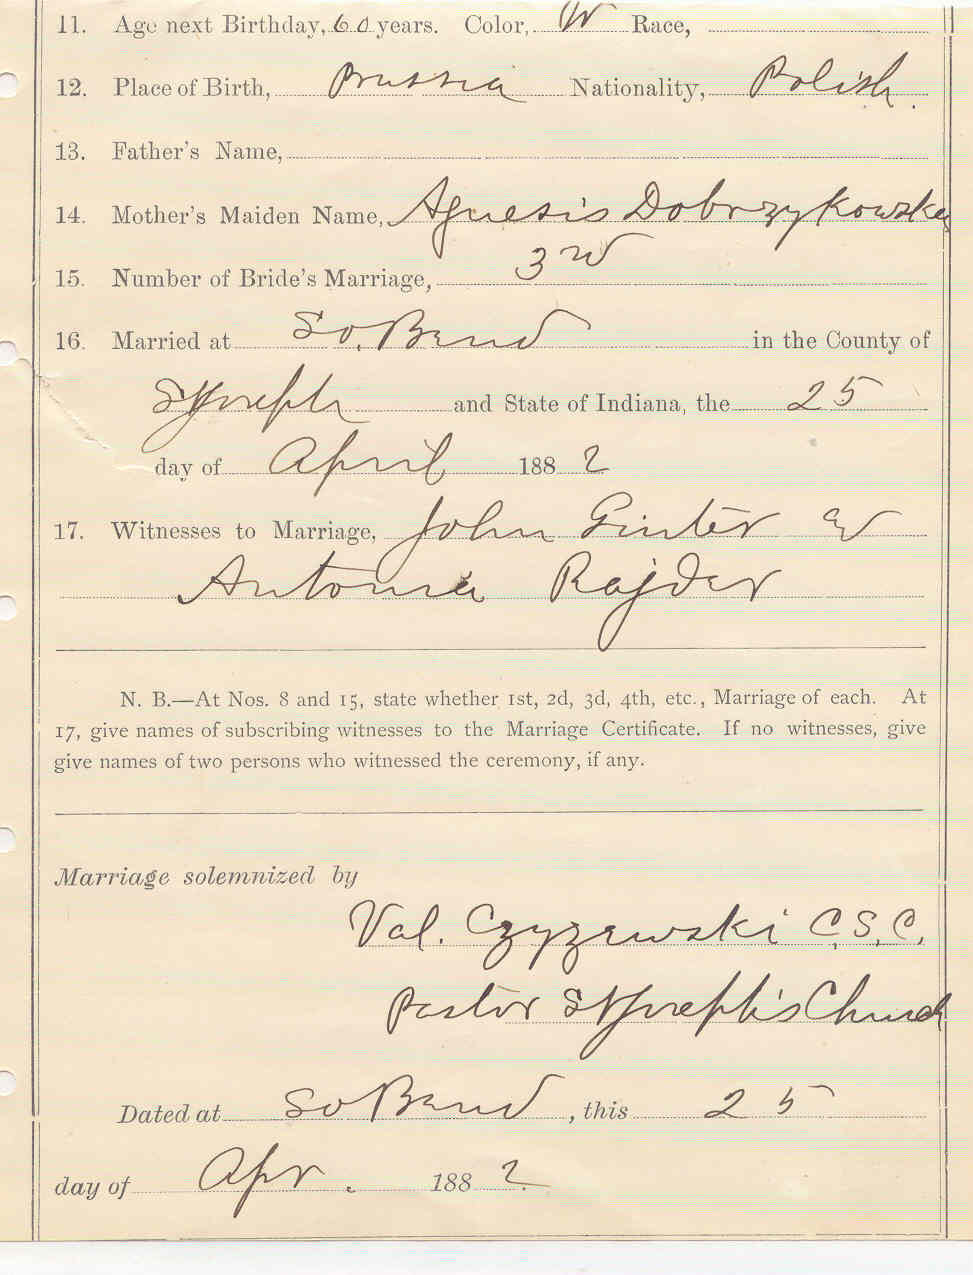 11. Age next Birthday, 60 years. Color, W Race,
12. Place of Birth, Prussia Nationality, Polish.
13. Father's Name,
14. Mother's Maiden Name, Agnesis Dobrzykowska
15. Number of Bride's Marriage, 3rd
16. Married at So. Bend in the County of
St Joseph and State of Indiana, the 25
day of April 1882
17. Witnesses to Marriage, John Ginter &
Antonia Rajder
N. B.—At Nos. 8 and 15, state whether 1st, 2d, 3d, 4th, etc., Marriage of each. At
17, give names of subscribing witnesses to the Marriage Certificate. If no witnesses, give
give names of two persons who witnessed the ceremony, if any.
Marriage solemnized by
Val. Czyzewski C.S.C.
Pastor St Joseph's Church
Dated at So Bend, this 25
day of Apr. 1882